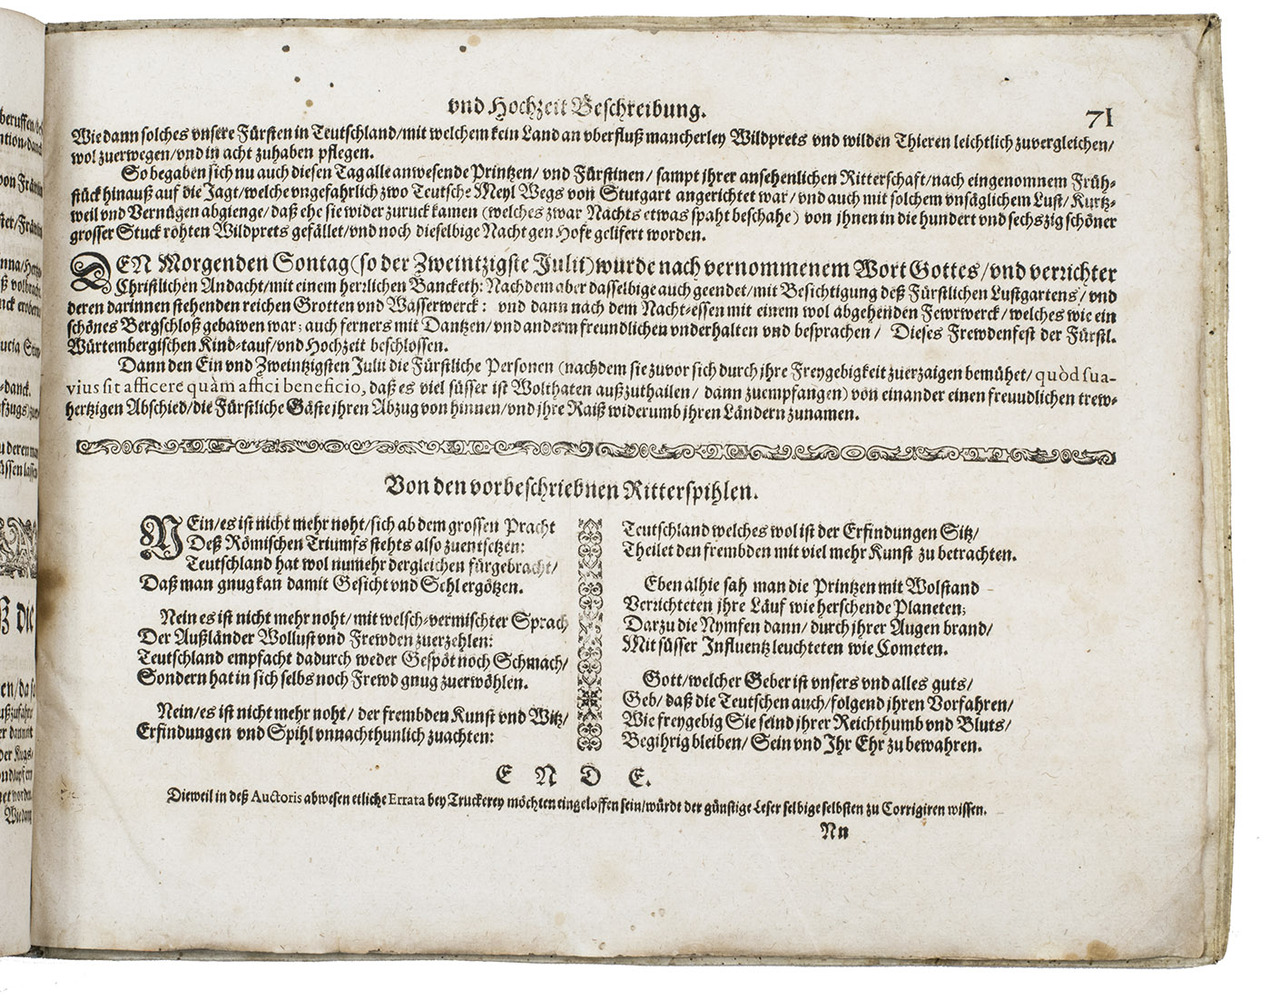 vnd Hochzeit Beschreibung.
71
Wie dann solches vnsere Fürsten in Teutschland/mit welchem kein Land an vberfluß mancherley Wildprets vnd wilden Thieren leichtlich zuvergleichen/
wol zuerwegen/vnd in acht zuhaben pflegen.
So begaben sich nu auch diesen Tag alle anwesende Printzen/ vnd Fürstinen/ sampt jhrer ansehenlichen Ritterschaft/nach eingenomnem Früh-
stück hinauß auf die Jagt/welche vngefahrlich zwo Teutsche Meyl Wegs von Stutgart angerichtet war/vnd auch mit solchem vnsäglichem Lust/ Kurtz-
weil vnd Vernügen abgienge/daß ehe sie wider zuruck kamen (welches zwar Nachts etwas spaht beschahe) von jhnen in die hundert vnd sechszig schöner
grosser Stuck rohten Wildprets gefället/vnd noch dieselbige Nacht gen Hofe gelifert worden.
DEN Morgenden Sontag (so der Zweintzigste Julii) wurde nach vernommenem Wort Gottes/vnd verrichter
Christlichen Andacht/mit einem herrlichen Bancketh: Nachdem aber dasselbige auch geendet/mit Besichtigung deß Fürstlichen Lustgartens/ vnd
deren darinnen stehenden reichen Grotten vnd Wasserwerck: vnd dann nach dem Nacht-essen mit einem wol abgehenden Fewrwerck/welches wie ein
schönes Bergschloß gebawen war: auch ferners mit Dantzen/vnd anderm freundlichen vnderhalten vnd besprachen/ Dieses Frewdenfest der Fürstl.
Würtembergischen Kind-tauf/vnd Hochzeit beschlossen.
Dann den Ein vnd Zweintzigsten Julii die Fürstliche Personen (nachdem sie zuvor sich durch jhre Freygebigkeit zuerzaigen bemühet/ quòd sua-
vius sit afficere quàm affici beneficio, daß es viel süsser ist Wolthaten außzuthailen/ dann zuempfangen) von einander einen freuudlichen trew-
hertzigen Abschied/die Fürstliche Gäste jhren Abzug von hinnen/vnd jhre Raiß widerumb jhren Ländern zunamen.
Von den vorbeschriebnen Ritterspihlen.
NEin/es ist nicht mehr noht/sich ab dem grossen Pracht
Deß Römischen Triumfs stehts also zuentsetzen:
Teutschland hat wol numehr dergleichen fürgebracht/
Daß man gnug kan damit Gesicht vnd Sehl ergötzen.
Nein es ist nicht mehr noht/ mit welsch-vermischter Sprach
Der Außländer Wollust vnd Frewden zuerzehlen:
Teutschland empfacht dadurch weder Gespöt noch Schmach/
Sondern hat in sich selbs noch Frewd gnug zuerwöhlen.
Nein/es ist nicht mehr noht/ der frembden Kunst vnd Witz/
Erfindungen vnd Spihl vnnachthunlich zuachten:
Teutschland welches wol ist der Erfindungen Sitz/
Theilet den frembden mit viel mehr Kunst zu betrachten.
Eben alhie sah man die Printzen mit Wolstand
Verrichteten jhre Läuf wie herschende Planeten;
Darzu die Nymfen dann/ durch jhrer Augen brand/
Mit süsser Influentz leuchteten wie Cometen.
Gott/welcher Geber ist vnsers vnd alles guts/
Geb/ daß die Teutschen auch/folgend jhren Vorfahren/
Wie freygebig Sie seind jhrer Reichthumb vnd Bluts/
Begihrig bleiben/ Sein vnd Ihr Ehr zu bewahren.
E N D E.
Dieweil in deß Auctoris abwesen etliche Errata bey Truckerey möchten eingeloffen sein/würdt der günstige Leser selbige selbsten zu Corrigiren wissen.
Nn